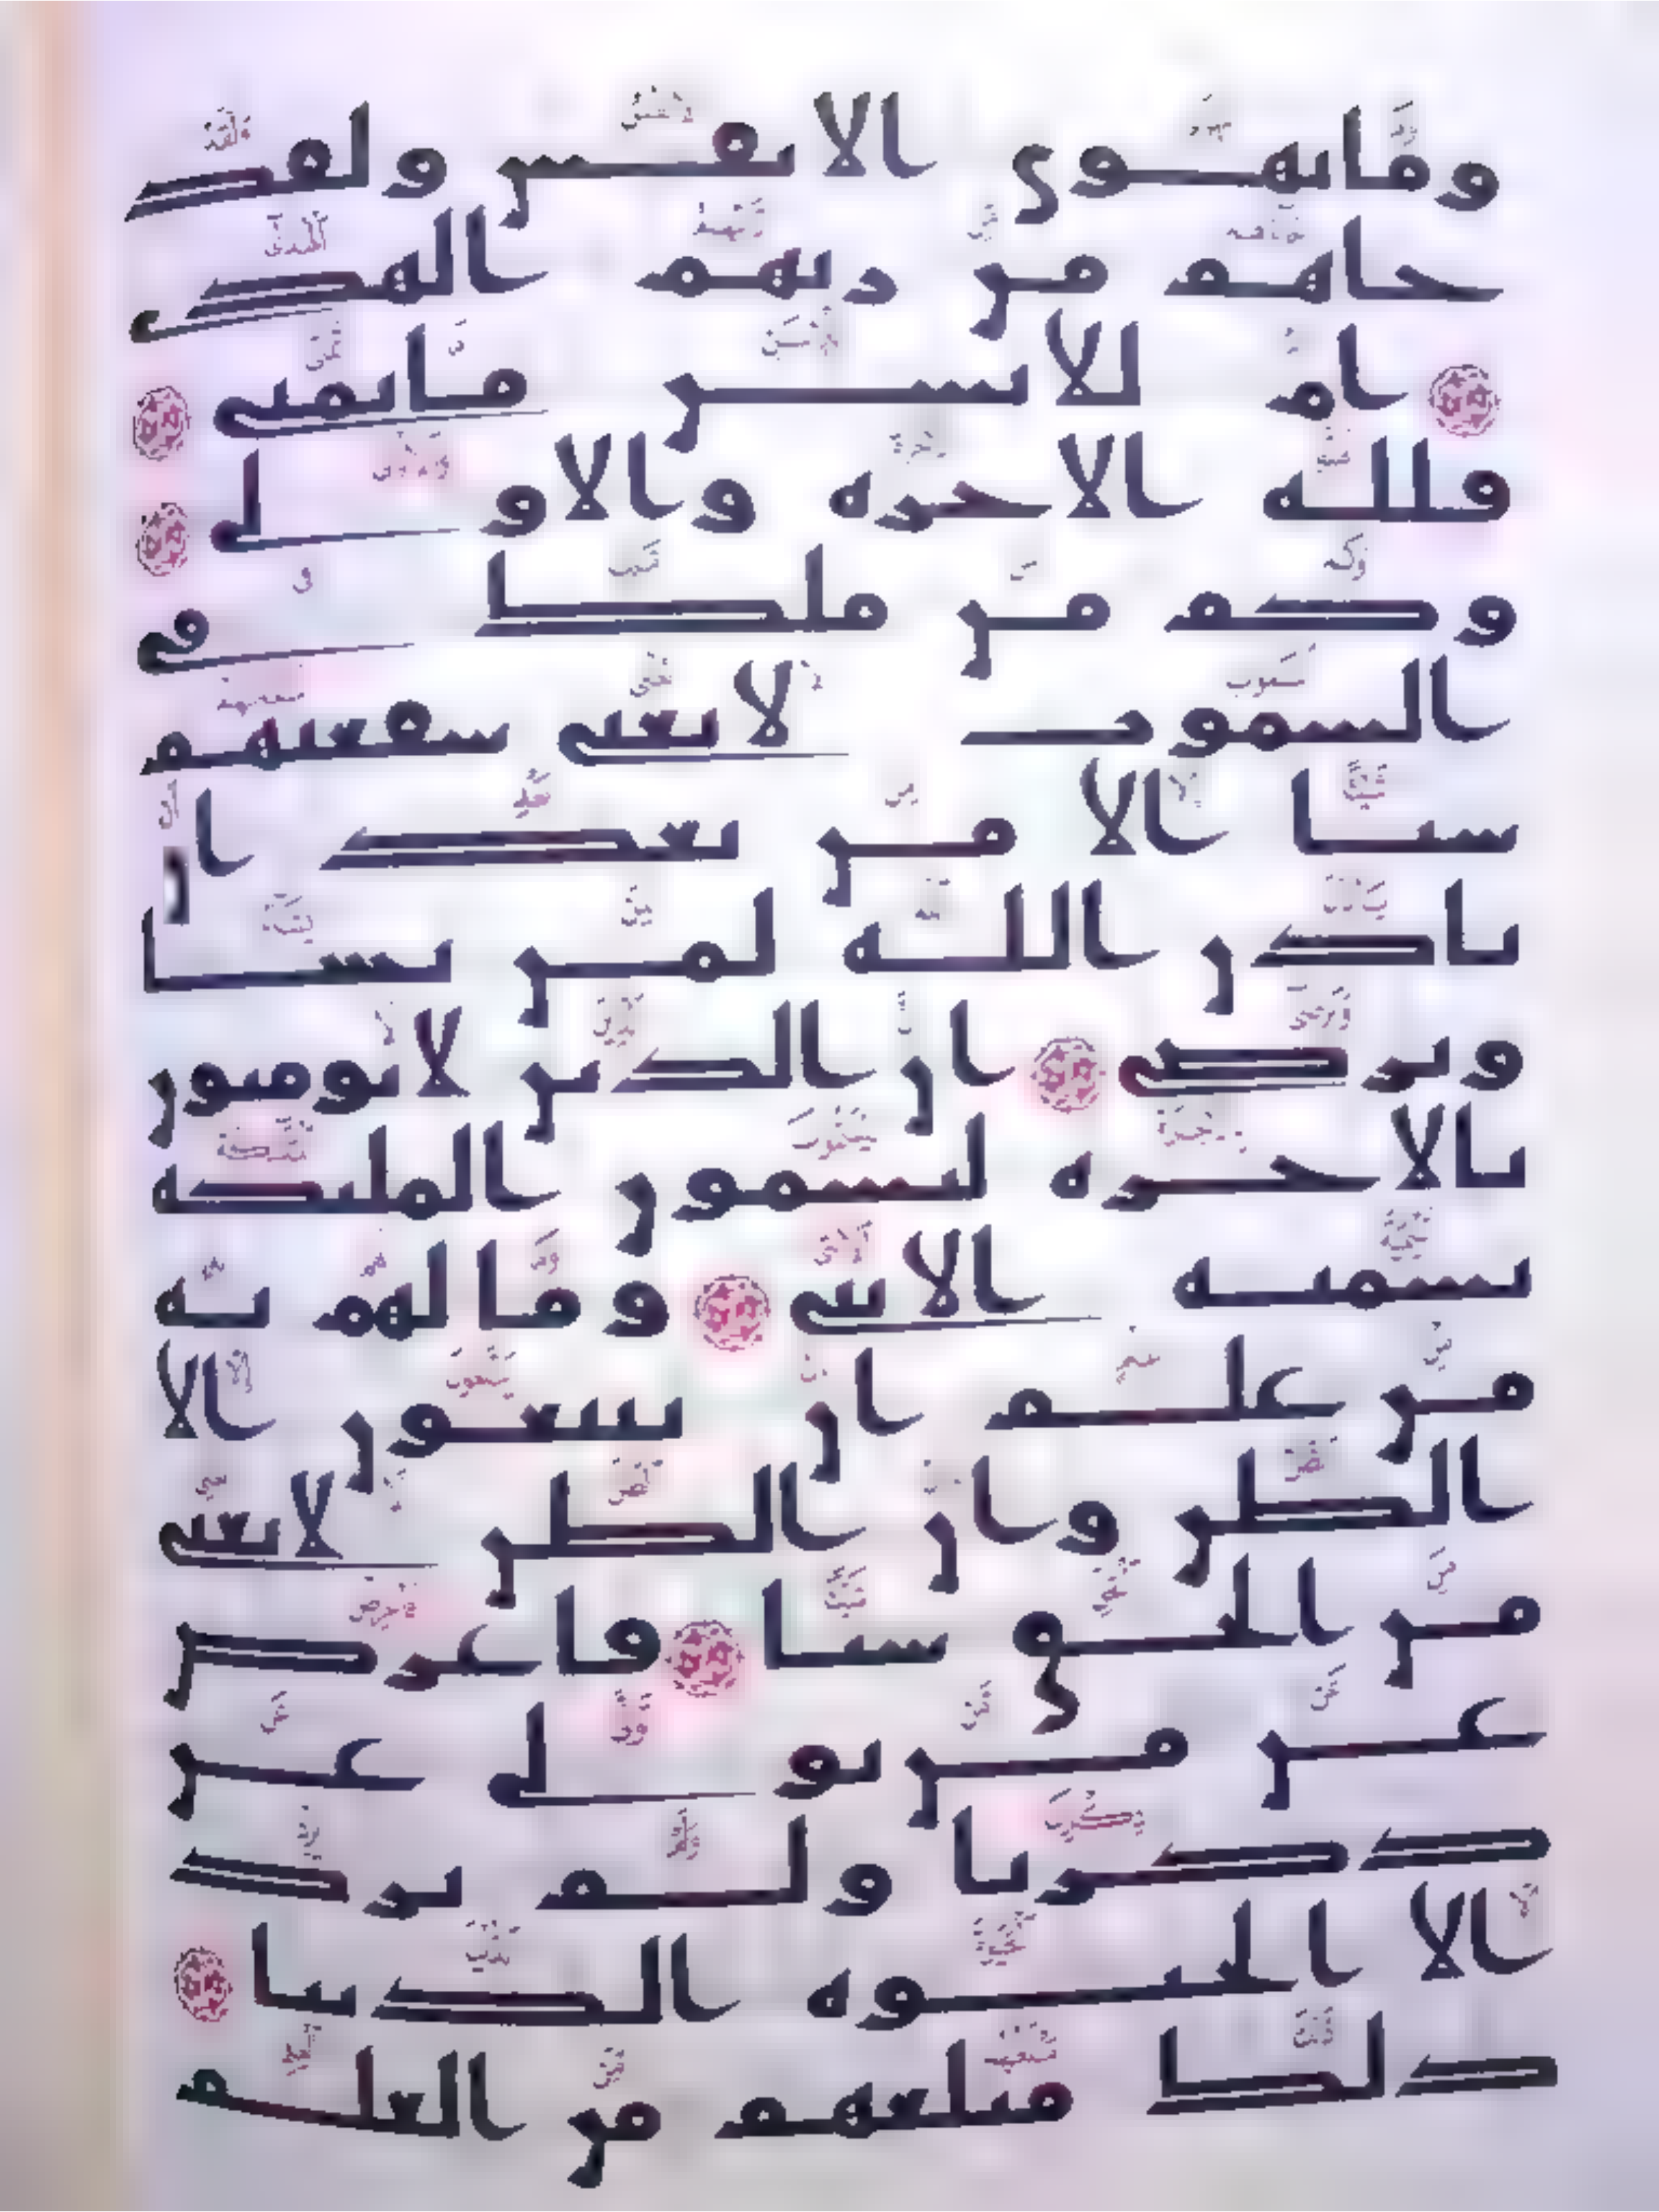 وما تهوى الانفس ولقد
جاهم من ربهم الهدى
ام للانسن ما تمنى
فلله الاخره والاولى
وكم من ملك فى
السموت لا تغنى شفعتهم
شيا الا من بعد ان
ياذن الله لمن يشا
ويرضى ان الذين لا يومنون
بالاخره ليسمون الملئكه
تسميه الانثى وما لهم به
من علم ان يتبعون الا
الظن وان الظن لا يغنى
من الحق شيا فاعرض
عن من تولى عن
ذكرنا ولم يرد
الا الحيوه الدنيا
ذلك مبلغهم من العلم